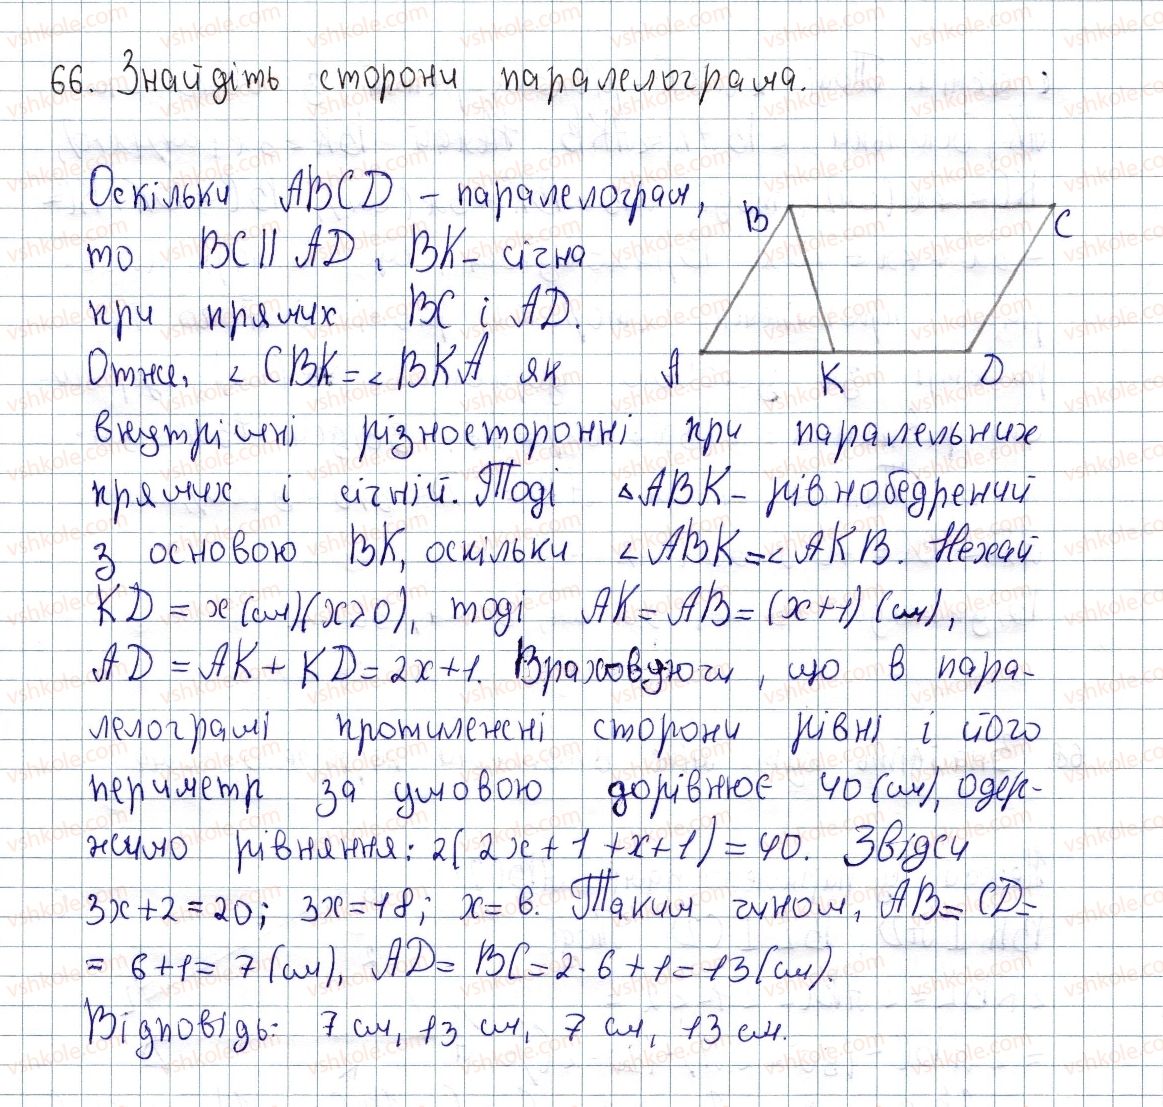 66. Знайдіть сторони паралелограма.
Оскільки ABCD – паралелограм,
то BC || AD, BK – січна
при прямих BC і AD.
Отже, ∠CBK = ∠BKA як
внутрішні різносторонні при паралельних
прямих і січній. Тоді △ABK – рівнобедрений
з основою BK, оскільки ∠ABK = ∠AKB. Нехай
KD = x (см) (x > 0), тоді AK = AB = (x + 1) (см),
AD = AK + KD = 2x + 1. Враховуючи, що в пара-
лелограмі протилежні сторони рівні і його
периметр за умовою дорівнює 40 (см), одер-
жимо рівняння: 2(2x + 1 + x + 1) = 40. Звідси
3x + 2 = 20; 3x = 18; x = 6. Таким чином, AB = CD =
= 6 + 1 = 7 (см), AD = BC = 2 · 6 + 1 = 13 (см).
Відповідь: 7 см, 13 см, 7 см, 13 см.
B
C
A
K
D
vshkole.com